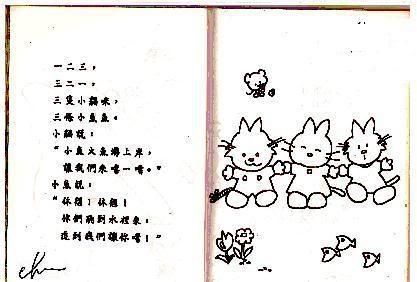 一二三，
三二一，
三隻小貓咪，
三條小魚魚。
小貓說：
“小魚大魚游上岸，
讓我們來嚐一嚐。”
小魚說：
“休想！休想！
你們跳到水裡來，
追到我們讓你嚐！”